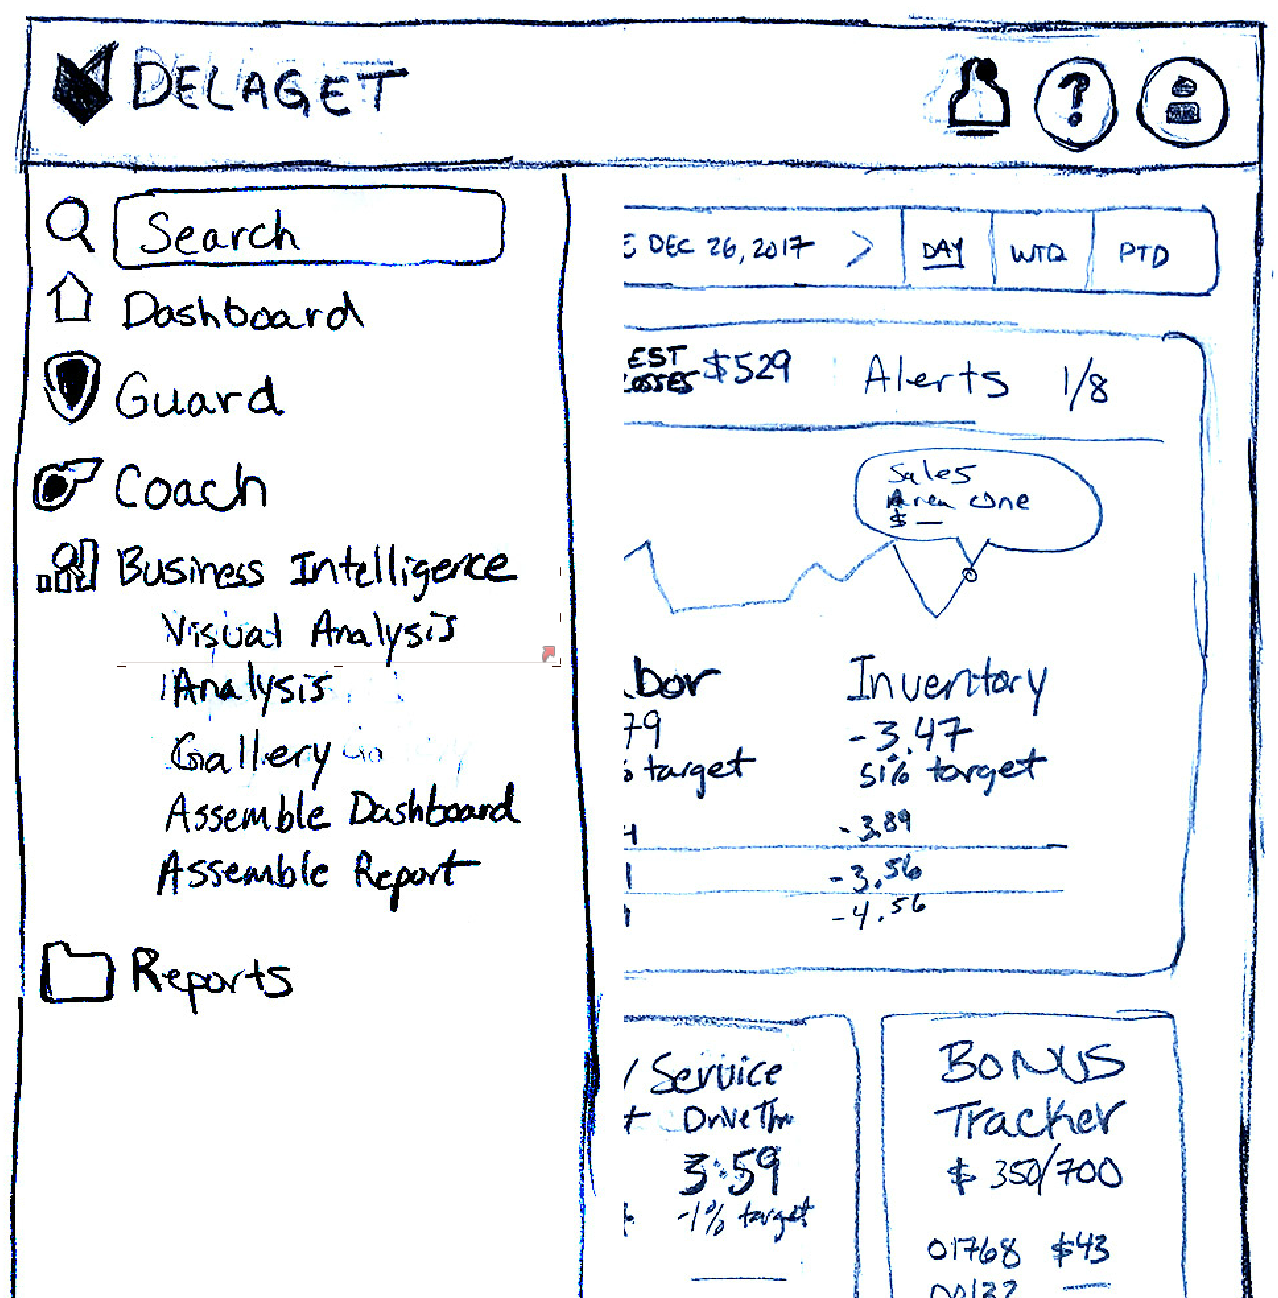 DELAGET
?
Search
Dashboard
Guard
Coach
Business Intelligence
Visual Analysis
Analysis
Gallery
Assemble Dashboard
Assemble Report
Reports
DEC 26, 2017 > DAY WTD PTD
EST $529 Alerts 1/8
OSSES
Sales
Area One
$ —
bor Inventory
79 -3.47
% target 51% target
-3.89
-3.56
-4.56
/ Service
DriveThru
3:59
-1% target
BONUS
Tracker
$ 350/700
01768 $43
00132